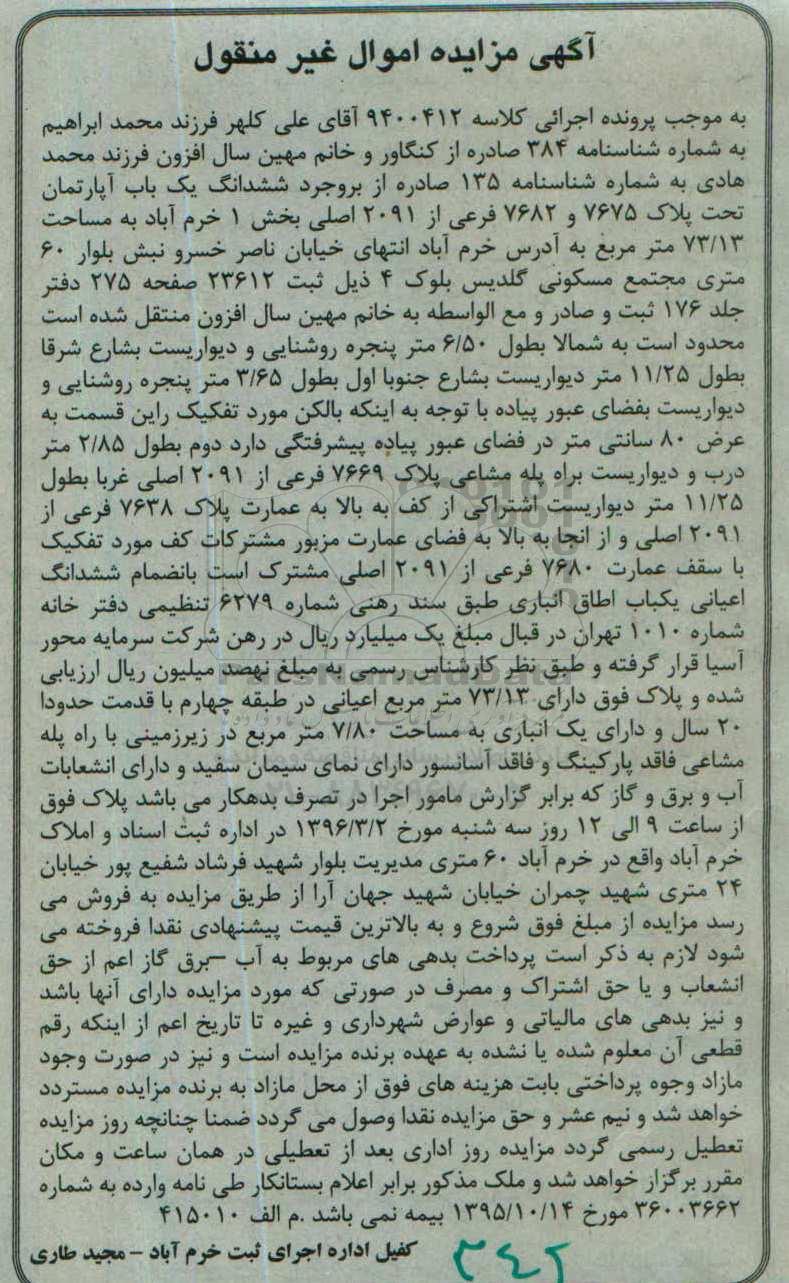 آگهی مزایده اموال غیر منقول
به موجب پرونده اجرائی کلاسه ۹۴۰۰۴۱۲ آقای علی کلهر فرزند محمد ابراهیم
به شماره شناسنامه ۳۸۴ صادره از کنگاور و خانم مهین سال افزون فرزند محمد
هادی به شماره شناسنامه ۱۳۵ صادره از بروجرد ششدانگ یک باب آپارتمان
تحت پلاک ۷۶۷۵ و ۷۶۸۲ فرعی از ۲۰۹۱ اصلی بخش ۱ خرم آباد به مساحت
۷۳/۱۳ متر مربع به آدرس خرم آباد انتهای خیابان ناصر خسرو نبش بلوار ۶۰
متری مجتمع مسکونی گلدیس بلوک ۴ ذیل ثبت ۲۳۶۱۲ صفحه ۲۷۵ دفتر
جلد ۱۷۶ ثبت و صادر و مع الواسطه به خانم مهین سال افزون منتقل شده است
محدود است به شمالا بطول ۶/۵۰ متر پنجره روشنایی و دیواریست بشارع شرقا
بطول ۱۱/۲۵ متر دیواریست بشارع جنوبا اول بطول ۳/۶۵ متر پنجره روشنایی و
دیواریست بفضای عبور پیاده با توجه به اینکه بالکن مورد تفکیک راین قسمت به
عرض ۸۰ سانتی متر در فضای عبور پیاده پیشرفتگی دارد دوم بطول ۲/۸۵ متر
درب و دیواریست براه پله مشاعی پلاک ۷۶۶۹ فرعی از ۲۰۹۱ اصلی غربا بطول
۱۱/۲۵ متر دیواریست اشتراکی از کف به بالا به عمارت پلاک ۷۶۳۸ فرعی از
۲۰۹۱ اصلی و از انجا به بالا به فضای عمارت مزبور مشترکات کف مورد تفکیک
با سقف عمارت ۷۶۸۰ فرعی از ۲۰۹۱ اصلی مشترک است بانضمام ششدانگ
اعیانی یکباب اطاق انباری طبق سند رهنی شماره ۶۲۷۹ تنظیمی دفتر خانه
شماره ۱۰۱۰ تهران در قبال مبلغ یک میلیارد ریال در رهن شرکت سرمایه محور
آسیا قرار گرفته و طبق نظر کارشناس رسمی به مبلغ نهصد میلیون ریال ارزیابی
شده و پلاک فوق دارای ۷۳/۱۳ متر مربع اعیانی در طبقه چهارم با قدمت حدودا
۲۰ سال و دارای یک انباری به مساحت ۷/۸۰ متر مربع در زیرزمینی با راه پله
مشاعی فاقد پارکینگ و فاقد آسانسور دارای نمای سیمان سفید و دارای انشعابات
آب و برق و گاز که برابر گزارش مامور اجرا در تصرف بدهکار می باشد پلاک فوق
از ساعت ۹ الی ۱۲ روز سه شنبه مورخ ۱۳۹۶/۳/۲ در اداره ثبت اسناد و املاک
خرم آباد واقع در خرم آباد ۶۰ متری مدیریت بلوار شهید فرشاد شفیع پور خیابان
۲۴ متری شهید چمران خیابان شهید جهان آرا از طریق مزایده به فروش می
رسد مزایده از مبلغ فوق شروع و به بالاترین قیمت پیشنهادی نقدا فروخته می
شود لازم به ذکر است پرداخت بدهی های مربوط به آب –برق گاز اعم از حق
انشعاب و یا حق اشتراک و مصرف در صورتی که مورد مزایده دارای آنها باشد
و نیز بدهی های مالیاتی و عوارض شهرداری و غیره تا تاریخ اعم از اینکه رقم
قطعی آن معلوم شده یا نشده به عهده برنده مزایده است و نیز در صورت وجود
مازاد وجوه پرداختی بابت هزینه های فوق از محل مازاد به برنده مزایده مستردد
خواهد شد و نیم عشر و حق مزایده نقدا وصول می گردد ضمنا چنانچه روز مزایده
تعطیل رسمی گردد مزایده روز اداری بعد از تعطیلی در همان ساعت و مکان
مقرر برگزار خواهد شد و ملک مذکور برابر اعلام بستانکار طی نامه وارده به شماره
۳۶۰۰۳۶۶۲ مورخ ۱۳۹۵/۱۰/۱۴ بیمه نمی باشد .م الف ۴۱۵۰۱۰
کفیل اداره اجرای ثبت خرم آباد – مجید طاری
۳۴۲